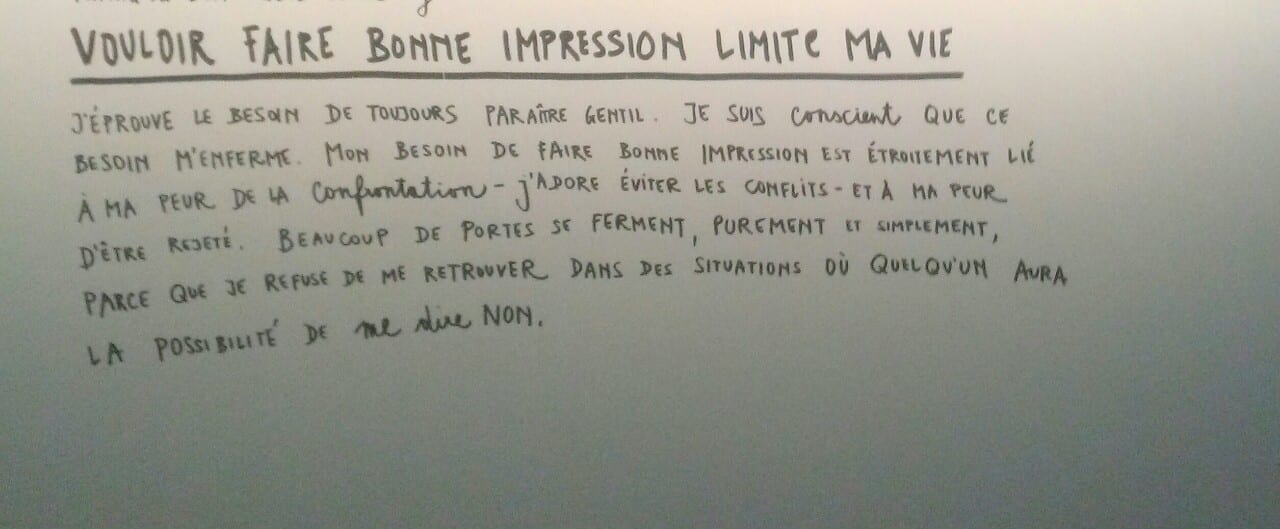 VOULOIR FAIRE BONNE IMPRESSION LIMITE MA VIE
J'ÉPROUVE LE BESOIN DE TOUJOURS PARAÎTRE GENTIL. JE SUIS conscient QUE CE
BESOIN M'ENFERME. MON BESOIN DE FAIRE BONNE IMPRESSION EST ÉTROITEMENT LIÉ
À MA PEUR DE LA confrontation - j'ADORE ÉVITER LES CONFLITS - ET À MA PEUR
D'ÊTRE REJETÉ. BEAUCOUP DE PORTES SE FERMENT, PUREMENT ET SIMPLEMENT,
PARCE QUE JE REFUSE DE ME RETROUVER DANS DES SITUATIONS OÙ QUELQU'UN AURA
LA POSSIBILITÉ DE me dire NON.